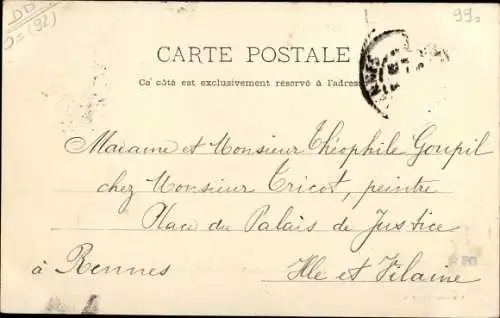 DD
D=(92)
99.
CARTE POSTALE
Ce côté est exclusivement réservé à l'adresse
Madame et Monsieur Théophile Goupil
chez Monsieur Tricot, peintre
Place du Palais de Justice
à Rennes Ille et Vilaine